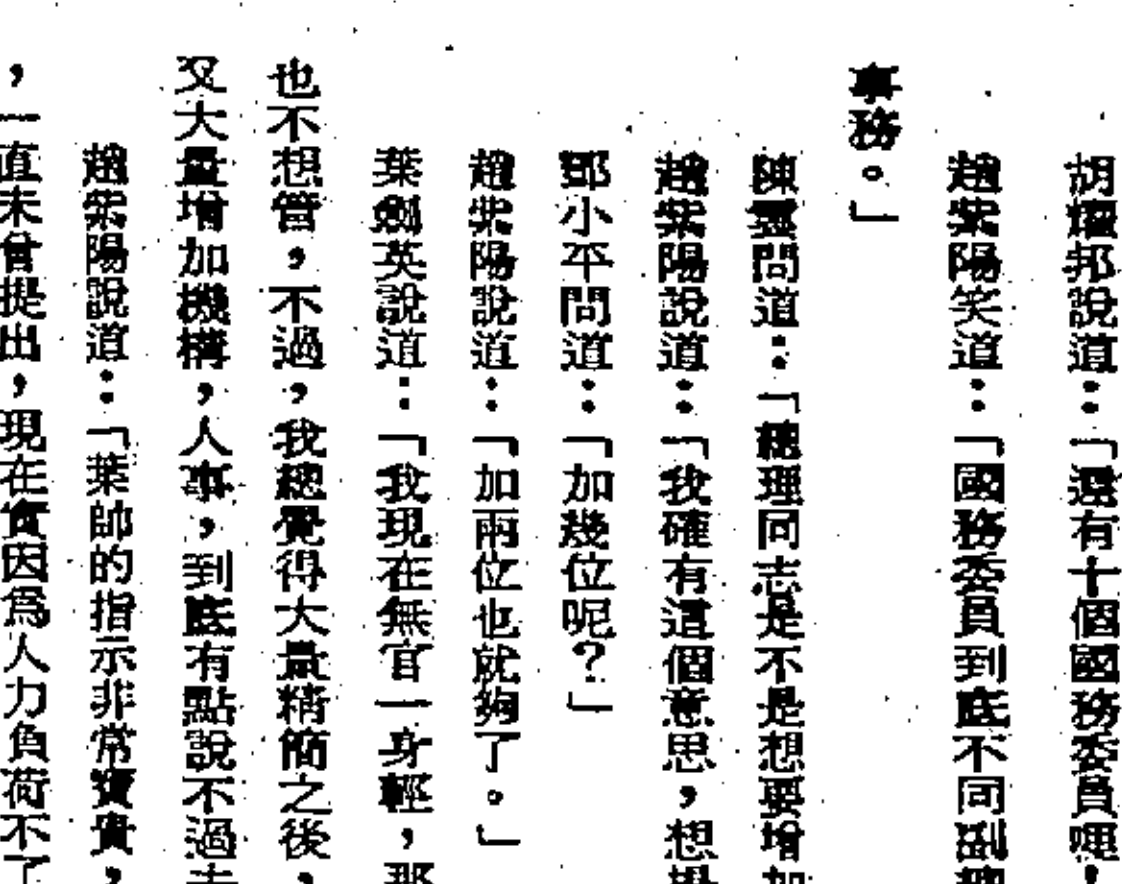 胡耀邦說道：「還有十個國務委員哩，
趙紫陽笑道：「國務委員到底不同副總
事務。」
陳雲問道：「總理同志是不是想要增加
趙紫陽說道：「我確有這個意思，想
鄧小平問道：「加幾位呢？」
趙紫陽說道：「加兩位也就夠了。」
葉劍英說道：「我現在無官一身輕，那
也不想管，不過，我總覺得大量精簡之後，
又大量增加機構，人事，到底有點說不過去
趙紫陽說道：「葉帥的指示非常寶貴，
，一直未曾提出，現在實因爲人力負荷不了